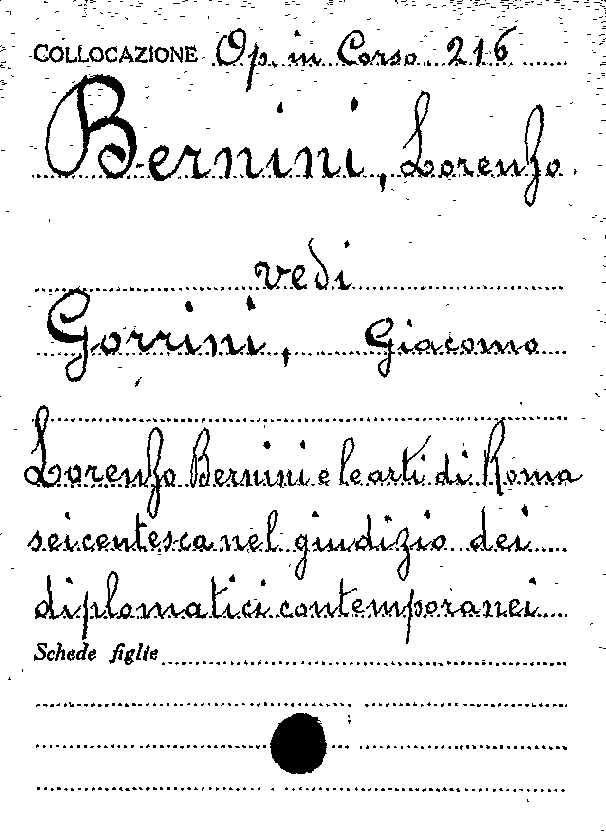 COLLOCAZIONE Op. in Corso 216
Bernini, Lorenzo.
vedi
Gorrini, Giacomo
Lorenzo Bernini e le arti di Roma
seicentesca nel giudizio dei
diplomatici contemporanei
Schede figlie